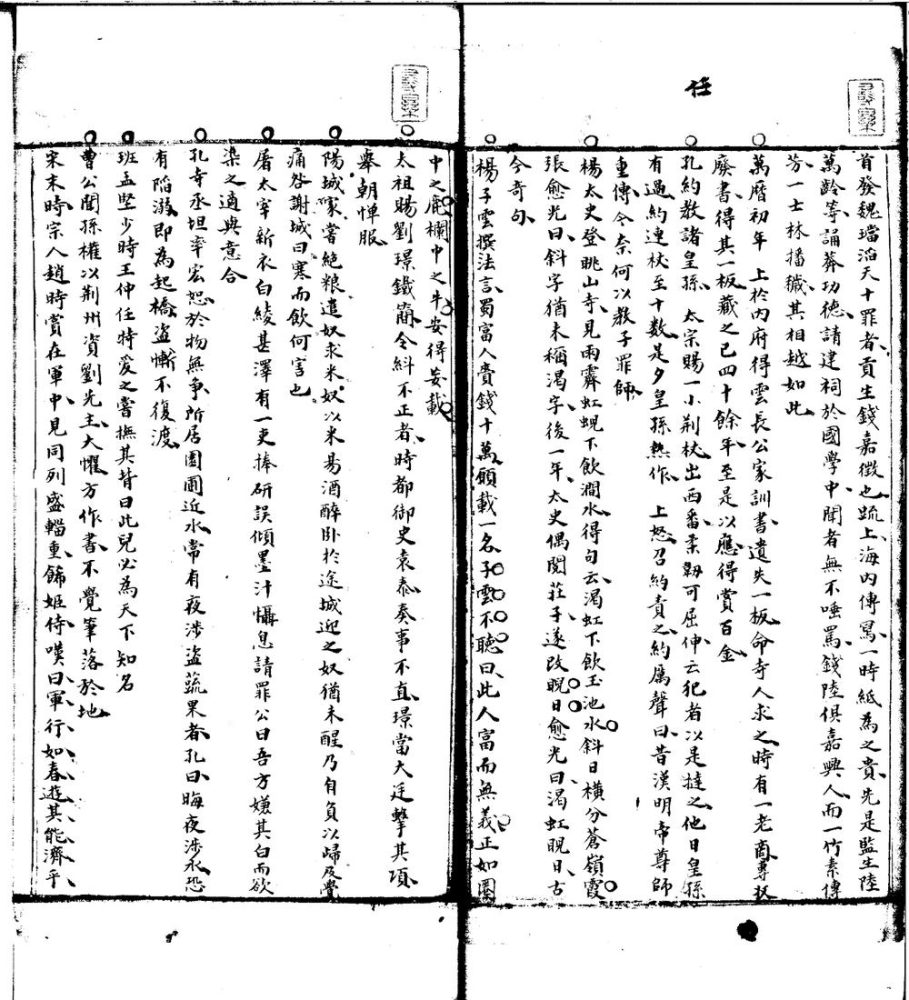 任
首發魏璫滔天十罪者貢生錢嘉徵也䟽上海內傳寫一時紙為之貴先是監生陸
萬齡等誦莽功德請建祠於國學中聞者無不唾罵錢陸俱嘉興人而一竹素傳
芳一士林播穢其相越如此
萬曆初年 上於內府得雲長公家訓書遺失一板命寺人求之時有一老商專收
廢書得其一板藏之已四十餘年至是以應得賞百金
孔約教諸皇孫 太宗賜一小荆杖出西番柔韌可屈伸云犯者以是撻之他日皇孫
有過約連杖至十數是夕皇孫熱作 上怒召約責之約厲聲曰昔漢明帝尊師
重傅今奈何以教子罪師
楊太史登眺山寺見雨霽虹蜺下飲澗水得句云渴虹下飲玉池水斜日橫分蒼嶺霞
張愈光曰斜字猶未稱渴字後一年太史偶閱莊子遂改睨日愈光曰渴虹睨日古
今奇句
楊子雲撰法言蜀富人賫錢十萬願載一名子雲不聽曰此人富而無義正如圈
中之鹿欄中之牛安得妄載
太祖賜劉璟鐵簡令糾不正者時都御史袁泰奏事不直璟當大廷擊其項
舉朝憚服
陽城家嘗絕粮遣奴求米奴以米易酒醉卧於途城迎之奴猶未醒乃自負以歸及覺
痛咎謝城曰寒而飲何害也
屠太宰新衣白綾甚澤有一吏捧研誤傾墨汁懾息請罪公曰吾方嫌其白而欲
染之適與意合
孔寺丞坦率宏恕於物無爭所居園圃近水常有夜涉盜蔬果者孔曰晦夜涉水恐
有陷溺即為起橋盜慚不復渡
班孟堅少時王仲任特愛之嘗撫其背曰此兒必為天下知名
曹公聞孫權以荆州資劉先主大懼方作書不覺筆落於地
宋末時宗人趙時賞在軍中見同列盛輜重餙姬侍嘆曰軍行如春遊其能濟乎